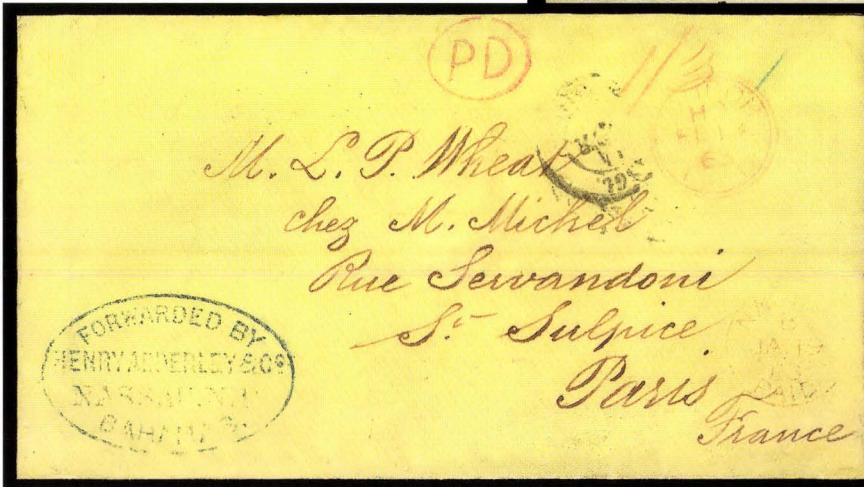 PD
1/3
M. L. P. Wheat
chez M. Michel
Rue Servandoni
St. Sulpice
Paris
France
FORWARDED BY
HENRY ADDERLEY & Co
NASSAU, N.P.
BAHAMAS
JA 19
PAID